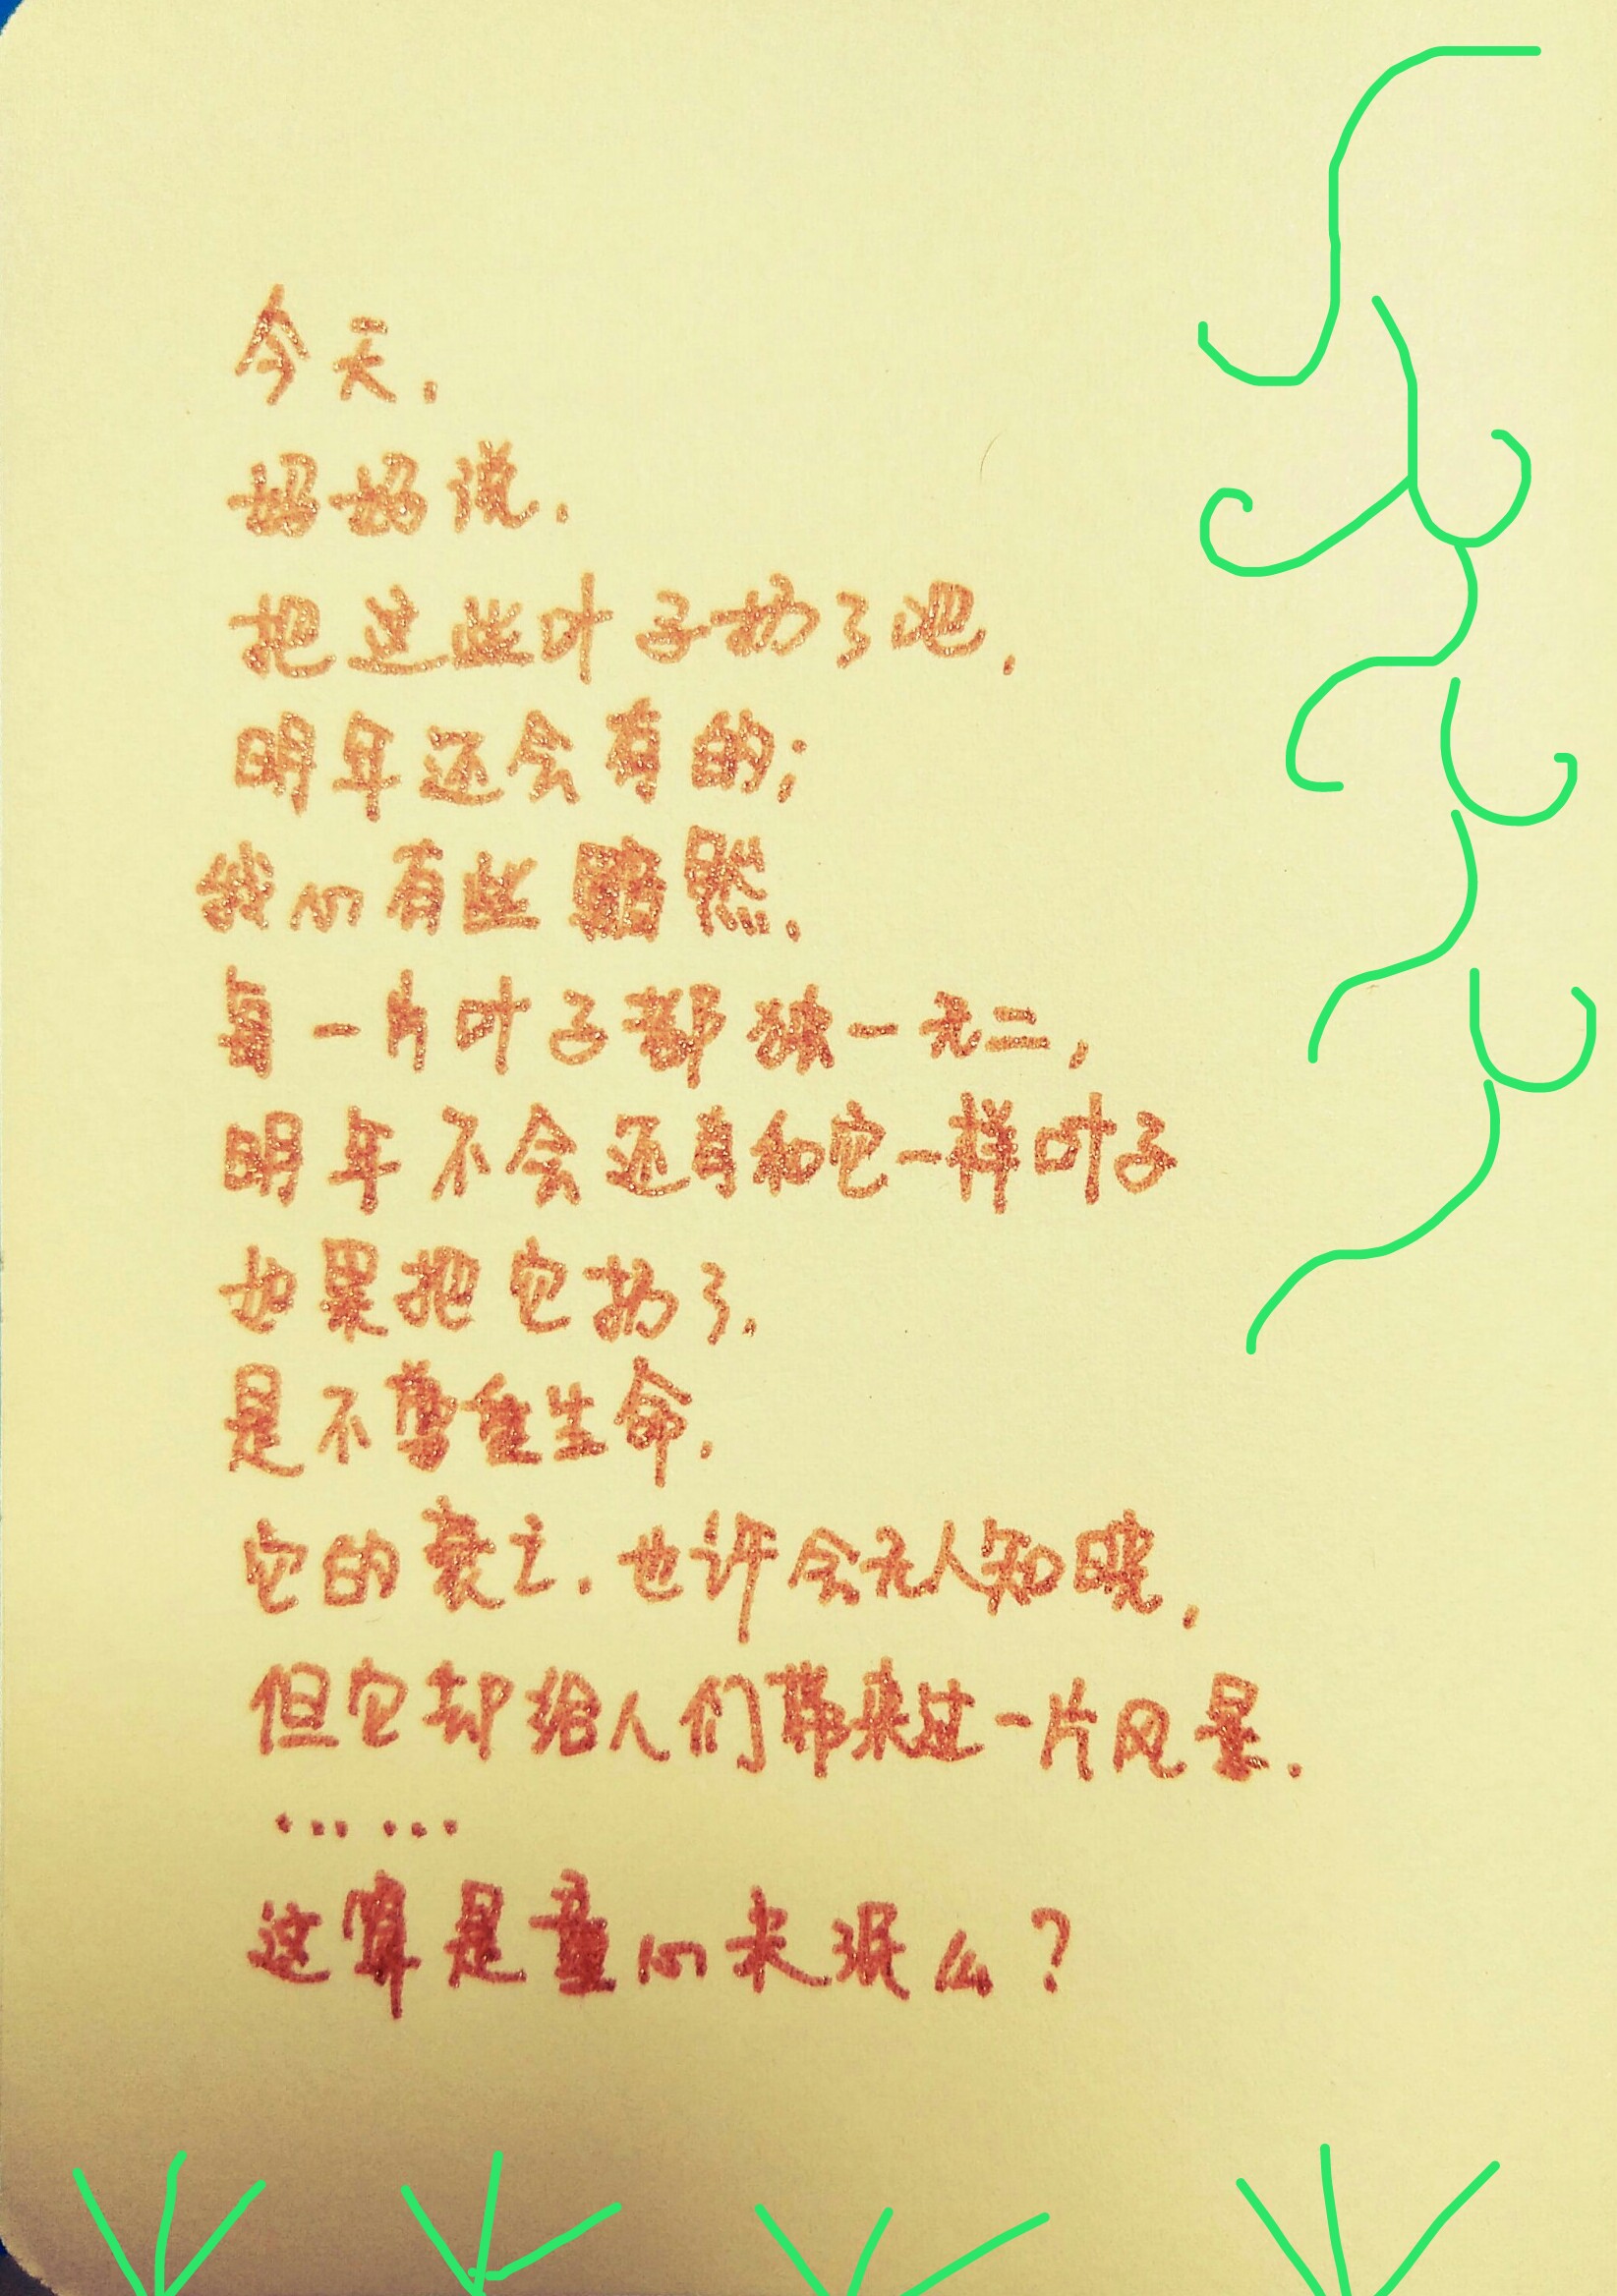 今天,
妈妈说,
把这些叶子扔了吧,
明年还会有的;
我心有些黯然,
每一片叶子都独一无二,
明年不会还有和它一样叶子
如果把它扔了,
是不尊重生命,
它的衰亡,也许会无人知晓,
但它却给人们带来过一片风景.
……
这算是童心未泯么?